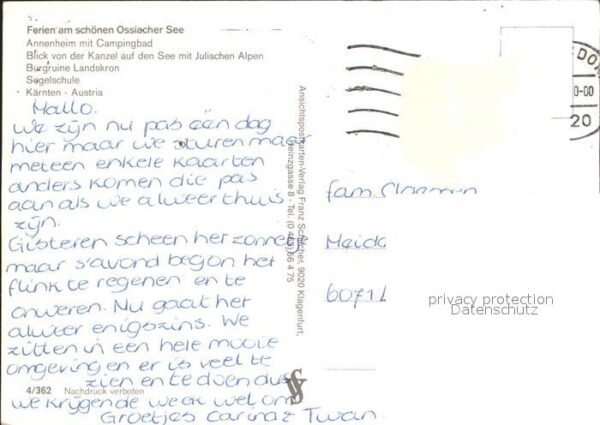 Ferien am schönen Ossiacher See
Annenheim mit Campingbad
Blick von der Kanzel auf den See mit Julischen Alpen
Burgruine Landskron
Segelschule
Kärnten - Austria
Hallo.
We zijn nu pas één dag
hier maar we sturen maar
meteen enkele kaarten
anders komen die pas
aan als we alweer thuis
zijn.
Gisteren scheen het zonnetje
maar s'avond begon het
flink te regenen en te
onweren. Nu gaat het
alweer enigszins. We
zitten in een hele mooie
omgeving en er is veel te
zien en te doen dus
we krijgen de week wel om
Groetjes Carina & Twan.
4/362 Nachdruck verboten
Ansichtspostkarten-Verlag Franz 9020 Klagenfurt,
8 - Tel. 6 4 75
0-00
20
fam.
60711
privacy protection
Datenschutz